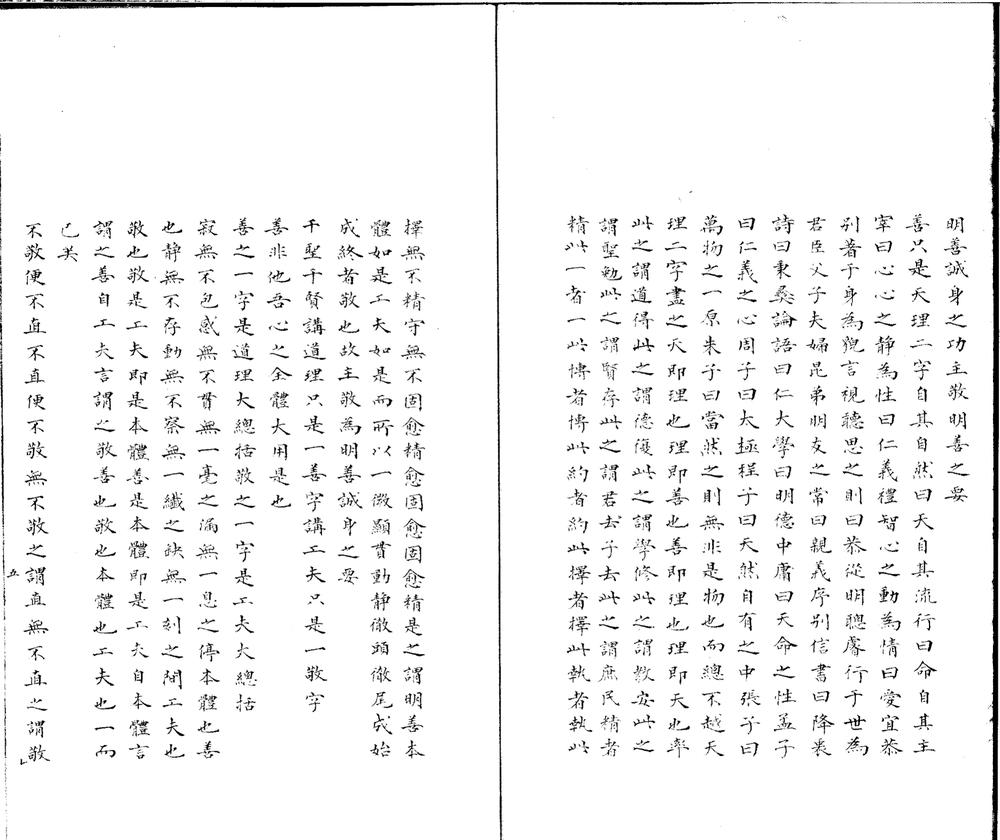 明善誠身之功主敬明善之要
善只是天理二字自其自然曰天自其流行曰命自其主
宰曰心心之静為性曰仁義禮智心之動為情曰愛宜恭
别著于身為貌言視聽思之則曰恭從明聰睿行于世為
君臣父子夫婦昆弟朋友之常曰親義序别信書曰降衷
詩曰秉彝論語曰仁大學曰明德中庸曰天命之性孟子
曰仁義之心周子曰太極程子曰天然自有之中張子曰
萬物之一原朱子曰當然之則無非是物也而總不越天
理二字盡之天即理也理即善也善即理也理即天也率
此之謂道得此之謂德復此之謂學修此之謂教安此之
謂聖勉此之謂賢存此之謂君子去此之謂庶民精者
精此一者一此博者博此約者約此擇者擇此執者執此
擇無不精守無不固愈精愈固愈固愈精是之謂明善本
體如是工夫如是而所以一微顯貫動静徹頭徹尾成始
成終者敬也故主敬為明善誠身之要
千聖千賢講道理只是一善字講工夫只是一敬字
善非他吾心之全體大用是也
善之一字是道理大總括敬之一字是工夫大總括
寂無不包感無不貫無一毫之漏無一息之停本體也善
也静無不存動無不察無一纖之缺無一刻之間工夫也
敬也敬是工夫即是本體善是本體即是工夫自本體言
謂之善自工夫言謂之敬善也敬也本體也工夫也一而
已矣
不敬便不直不直便不敬無不敬之謂直無不直之謂敬
五